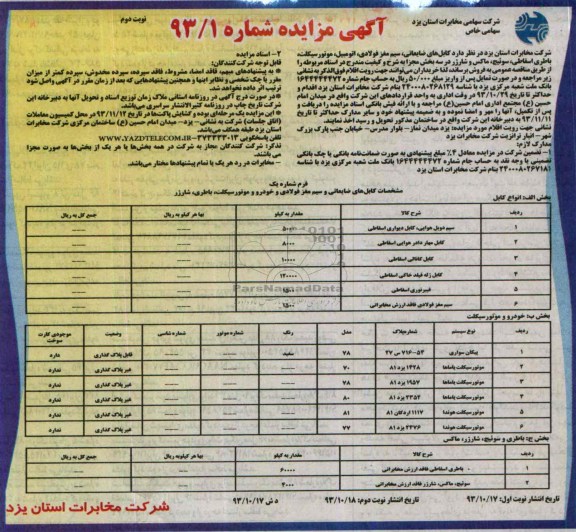 شرکت سهامی مخابرات استان یزد
سهامی خاص
آگهی مزایده شماره ۹۳/۱
نوبت دوم
شرکت مخابرات استان یزد در نظر دارد کابل‌های ضایعاتی، سیم مغز فولادی، اتومبیل، موتورسیکلت،
باطری اسقاطی، سوئیچ، ماکس و شارژر در سه بخش مجزا به شرح و کیفیت مندرج در اسناد مربوطه را
از طریق مناقصه عمومی به فروش برساند. لذا خریداران می‌توانند جهت رویت اقلام فوق‌الذکر به نشانی
زیر مراجعه و در صورت تمایل پس از واریز مبلغ ۵۰/۰۰۰ ریال به حساب جام شماره
بانک ملت شعبه مرکزی یزد با شناسه بنام شرکت مخابرات استان یزد اقدام و
حداکثر تا تاریخ ۹۳/۱۰/۲۹ در وقت اداری به واحد قراردادهای این شرکت واقع در میدان امام
حسین (ع) مجتمع اداری امام حسین(ع) مراجعه و با ارائه فیش بانکی اسناد مزایده را دریافت و
پس از تکمیل، آنها را مهر و امضا نموده و به ضمیمه پیشنهاد خود و سایر مدارک حداکثر تا تاریخ
۹۳/۱۱/۱۱ به دبیرخانه این شرکت واقع در ساختمان مذکور تحویل و رسید اخذ نمایند.
نشانی جهت رویت اقلام مورد مزایده: یزد میدان نماز - بلوار مدرس - خیابان جنب پارک بزرگ
شهر - انبار ترانزیت شرکت مخابرات یزد
مدارک لازم:
۱- تضمین شرکت در مزایده معادل ۴٪ مبلغ پیشنهادی به صورت ضمانت‌نامه بانکی یا چک بانکی
تضمینی یا وجه نقد به حساب جام شماره بانک ملت شعبه مرکزی یزد با شناسه
بنام شرکت مخابرات استان یزد
۲- اسناد مزایده
قابل توجه شرکت‌کنندگان:
* به پیشنهادهای مبهم، فاقد امضا، مشروط، فاقد سپرده، سپرده مخدوش، سپرده کمتر از میزان
مقرر یا چک شخصی و نظایر اینها و همچنین پیشنهادهایی که بعد از زمان مقرر در آگهی واصل شود
ترتیب اثر داده نخواهد شد.
* در صورت درج آگهی در روزنامه استانی ملاک زمان توزیع اسناد و تحویل آنها به دبیرخانه این
شرکت تاریخ چاپ در روزنامه کثیرالانتشار سراسری می‌باشد.
* این مزایده یک مرحله‌ای بوده و گشایش پاکت‌ها در تاریخ ۹۳/۱۱/۱۲ در محل کمیسیون معاملات
(اتاق جلسات) شرکت به نشانی - یزد - میدان امام حسین (ع) ساختمان مرکزی شرکت مخابرات
استان یزد طبقه همکف می‌باشد.
WWW.YAZDTELECOM.IR
تذکر: شرکت کنندگان مجاز به شرکت در همه بخش‌ها یا هر یک از بخش‌ها به صورت مجزا
می باشند.
- مخابرات در رد هر یک یا تمام پیشنهادها مختار می‌باشد.
فرم شماره یک
مشخصات کابل‌های ضایعاتی و سیم مغز فولادی و خودرو و موتورسیکلت، باطری، شارژر
بخش الف: انواع کابل
ردیف شرح کالا مقدار به کیلو بها هر کیلو به ریال جمع کل به ریال
۱ سیم دوبل هوایی، کابل دیواری اسقاطی ۵۰۰۰
۲ کابل مهار دادر هوایی اسقاطی ۸۰۰۰
۳ کابل کانالی اسقاطی ۱۰۰۰۰
۴ کابل ژله فیلد خاکی اسقاطی ۱۲۰۰۰۰
۵ فیبر نوری اسقاطی ۱۵۰۰
۶ سیم مغز فولادی فاقد ارزش مخابراتی ۱۵۰۰
بخش ب: خودرو و موتورسیکلت
ردیف نوع سیستم شماره پلاک مدل رنگ شماره موتور شماره شاسی وضعیت موجودی کارت سوخت
۱ پیکان سواری ۵۳-۷۱۶ س ۴۷ ۷۸ سفید قابل پلاک گذاری دارد
۲ موتورسیکلت یاماها ۱۴۳۸ یزد ۸۱ ۷۰ غیر پلاک گذاری ندارد
۳ موتورسیکلت یاماها ۱۹۵۷ یزد ۸۱ ۷۸ غیر پلاک گذاری ندارد
۴ موتورسیکلت یاماها ۲۳۵۲ یزد ۸۱ ۸۰ غیر پلاک گذاری ندارد
۵ موتورسیکلت هوندا ۱۱۱۷ اردکان ۸۱ ۸۱ غیر پلاک گذاری ندارد
۶ موتورسیکلت هوندا ۲۲۷۶ یزد ۸۱ ۷۷ غیر پلاک گذاری ندارد
بخش ج: باطری و سوئیچ، شارژر، ماکس
ردیف شرح کالا مقدار به کیلو بها هر کیلو به ریال جمع کل به ریال
۱ باطری اسقاطی فاقد ارزش مخابراتی ۶۰۰۰۰
۲ سوئیچ، ماکس، شارژر فاقد ارزش مخابراتی ۴۰۰۰
تاریخ انتشار نوبت اول: ۹۳/۱۰/۱۷ تاریخ انتشار نوبت دوم: ۹۳/۱۰/۱۸ د ش ۹۳/۱۰/۱۷
شرکت مخابرات استان یزد
ParsNamadData